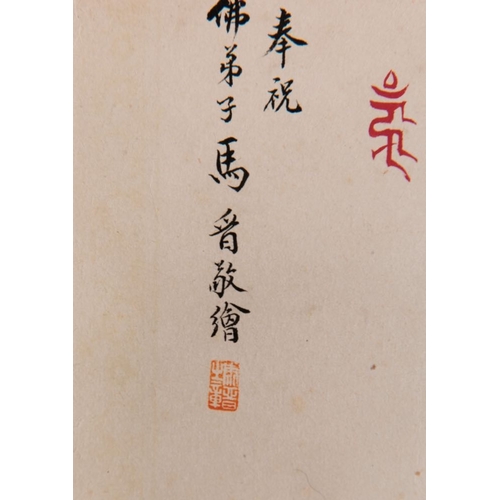 奉祝
佛弟子馬晋敬繪